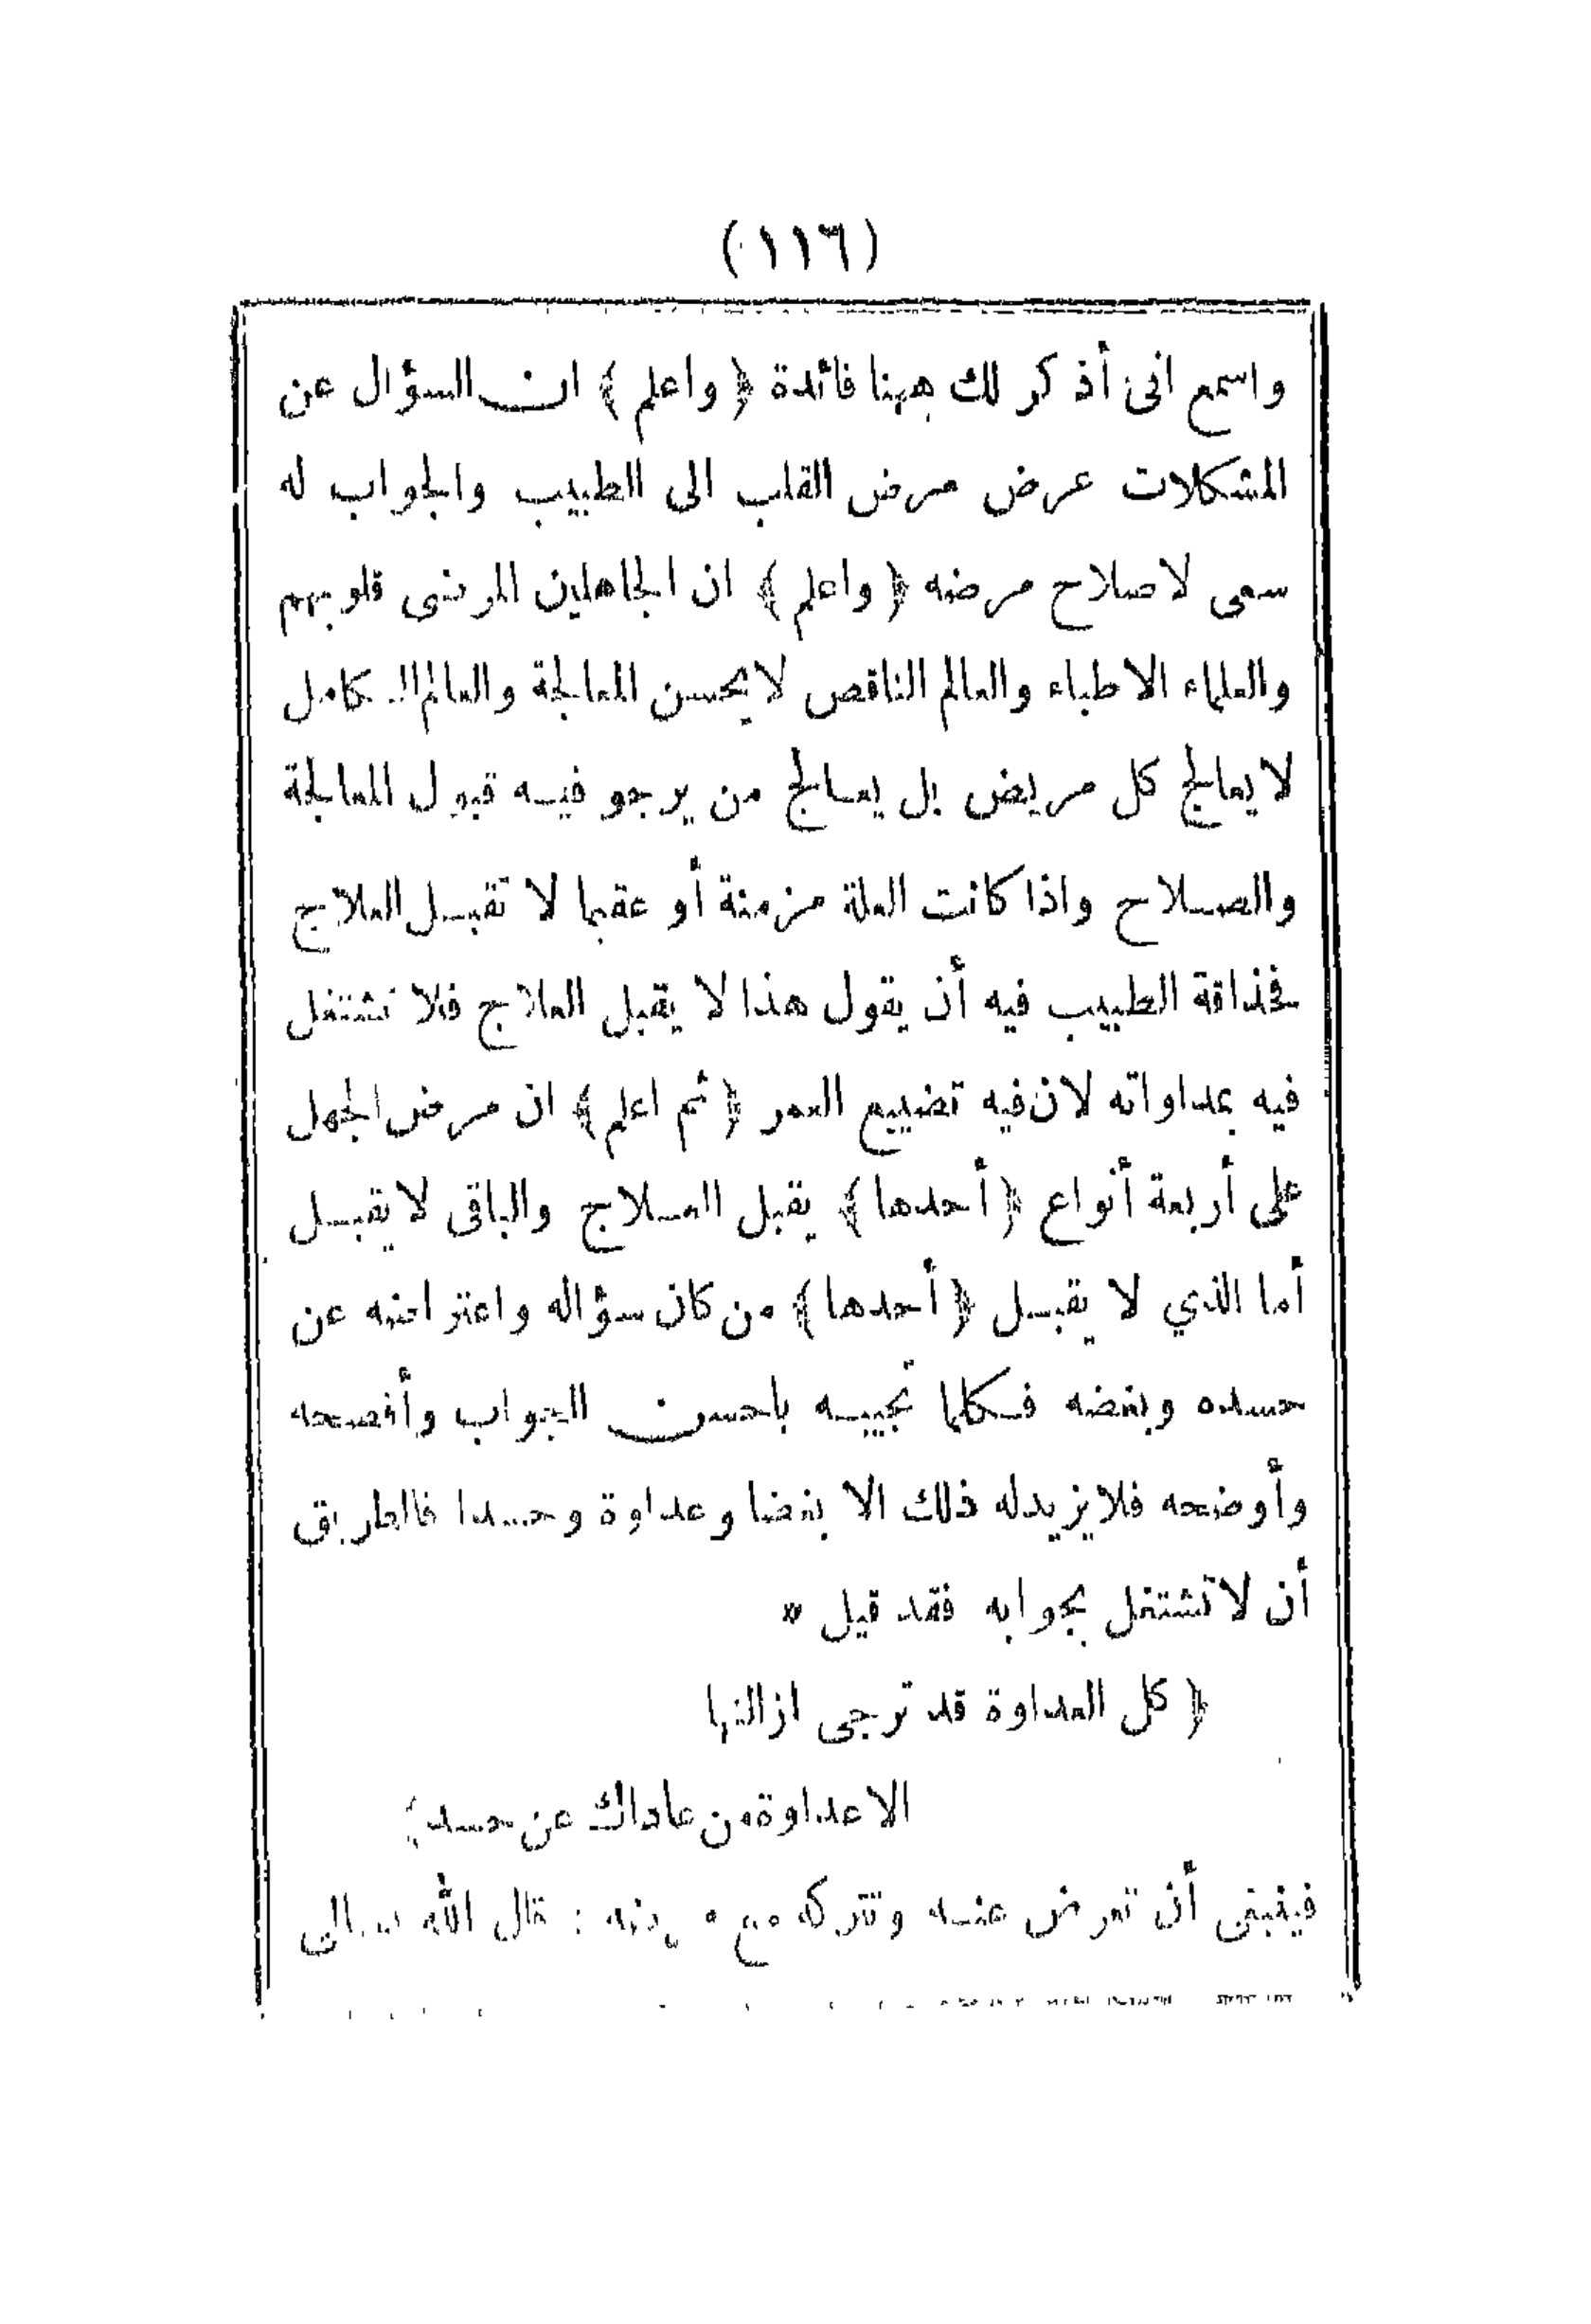 (١١٦)
واسمع انى أذكر لك ههنا فائدة ﴿ واعلم ﴾ ان السؤال عن
المشكلات عرض مرض القلب الى الطبيب والجواب له
سعى لاصلاح مرضه ﴿ واعلم ﴾ ان الجاهلين المرضى قلوبهم
والعلماء الاطباء والعالم الناقص لا يحسن المعالجة والعالم الكامل
لا يعالج كل مريض بل يعالج من يرجو فيه قبول المعالجة
والصلاح واذا كانت العلة مزمنة أو عقيما لا تقبل العلاج
فحذاقة الطبيب فيه أن يقول هذا لا يقبل العلاج فلا تشتغل
فيه بمداواته لان فيه تضييع العمر ﴿ ثم اعلم ﴾ ان مرض الجهل
على أربعة أنواع ﴿ أحدها ﴾ يقبل العلاج والباقى لا يقبل
أما الذي لا يقبل ﴿ أحدها ﴾ من كان سؤاله واعتراضه عن
حسده وبغضه فكلما تجيبه باحسن الجواب وأفصحه
وأوضحه فلا يزيد له ذلك الا بغضا وعداوة وحسدا فالطريق
أن لا تشتغل بجوابه فقد قيل *
﴿ كل العداوة قد ترجى ازالتها
الا عداوة من عاداك عن حسد ﴾
فينبغى أن تعرض عنه وتتركه مع مرضه : قال الله تعالى